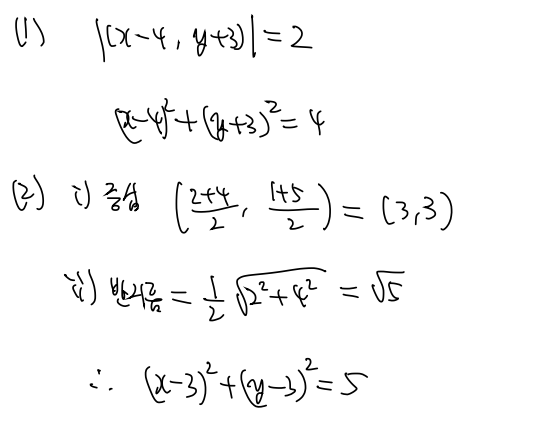 (1) |(x-4, y+3)| = 2
(x-4)²+(y+3)² = 4
(2) i) 중심 (2+4/2, 1+5/2) = (3,3)
ii) 반지름 = 1/2 √(2²+4²) = √5
∴ (x-3)²+(y-3)² = 5